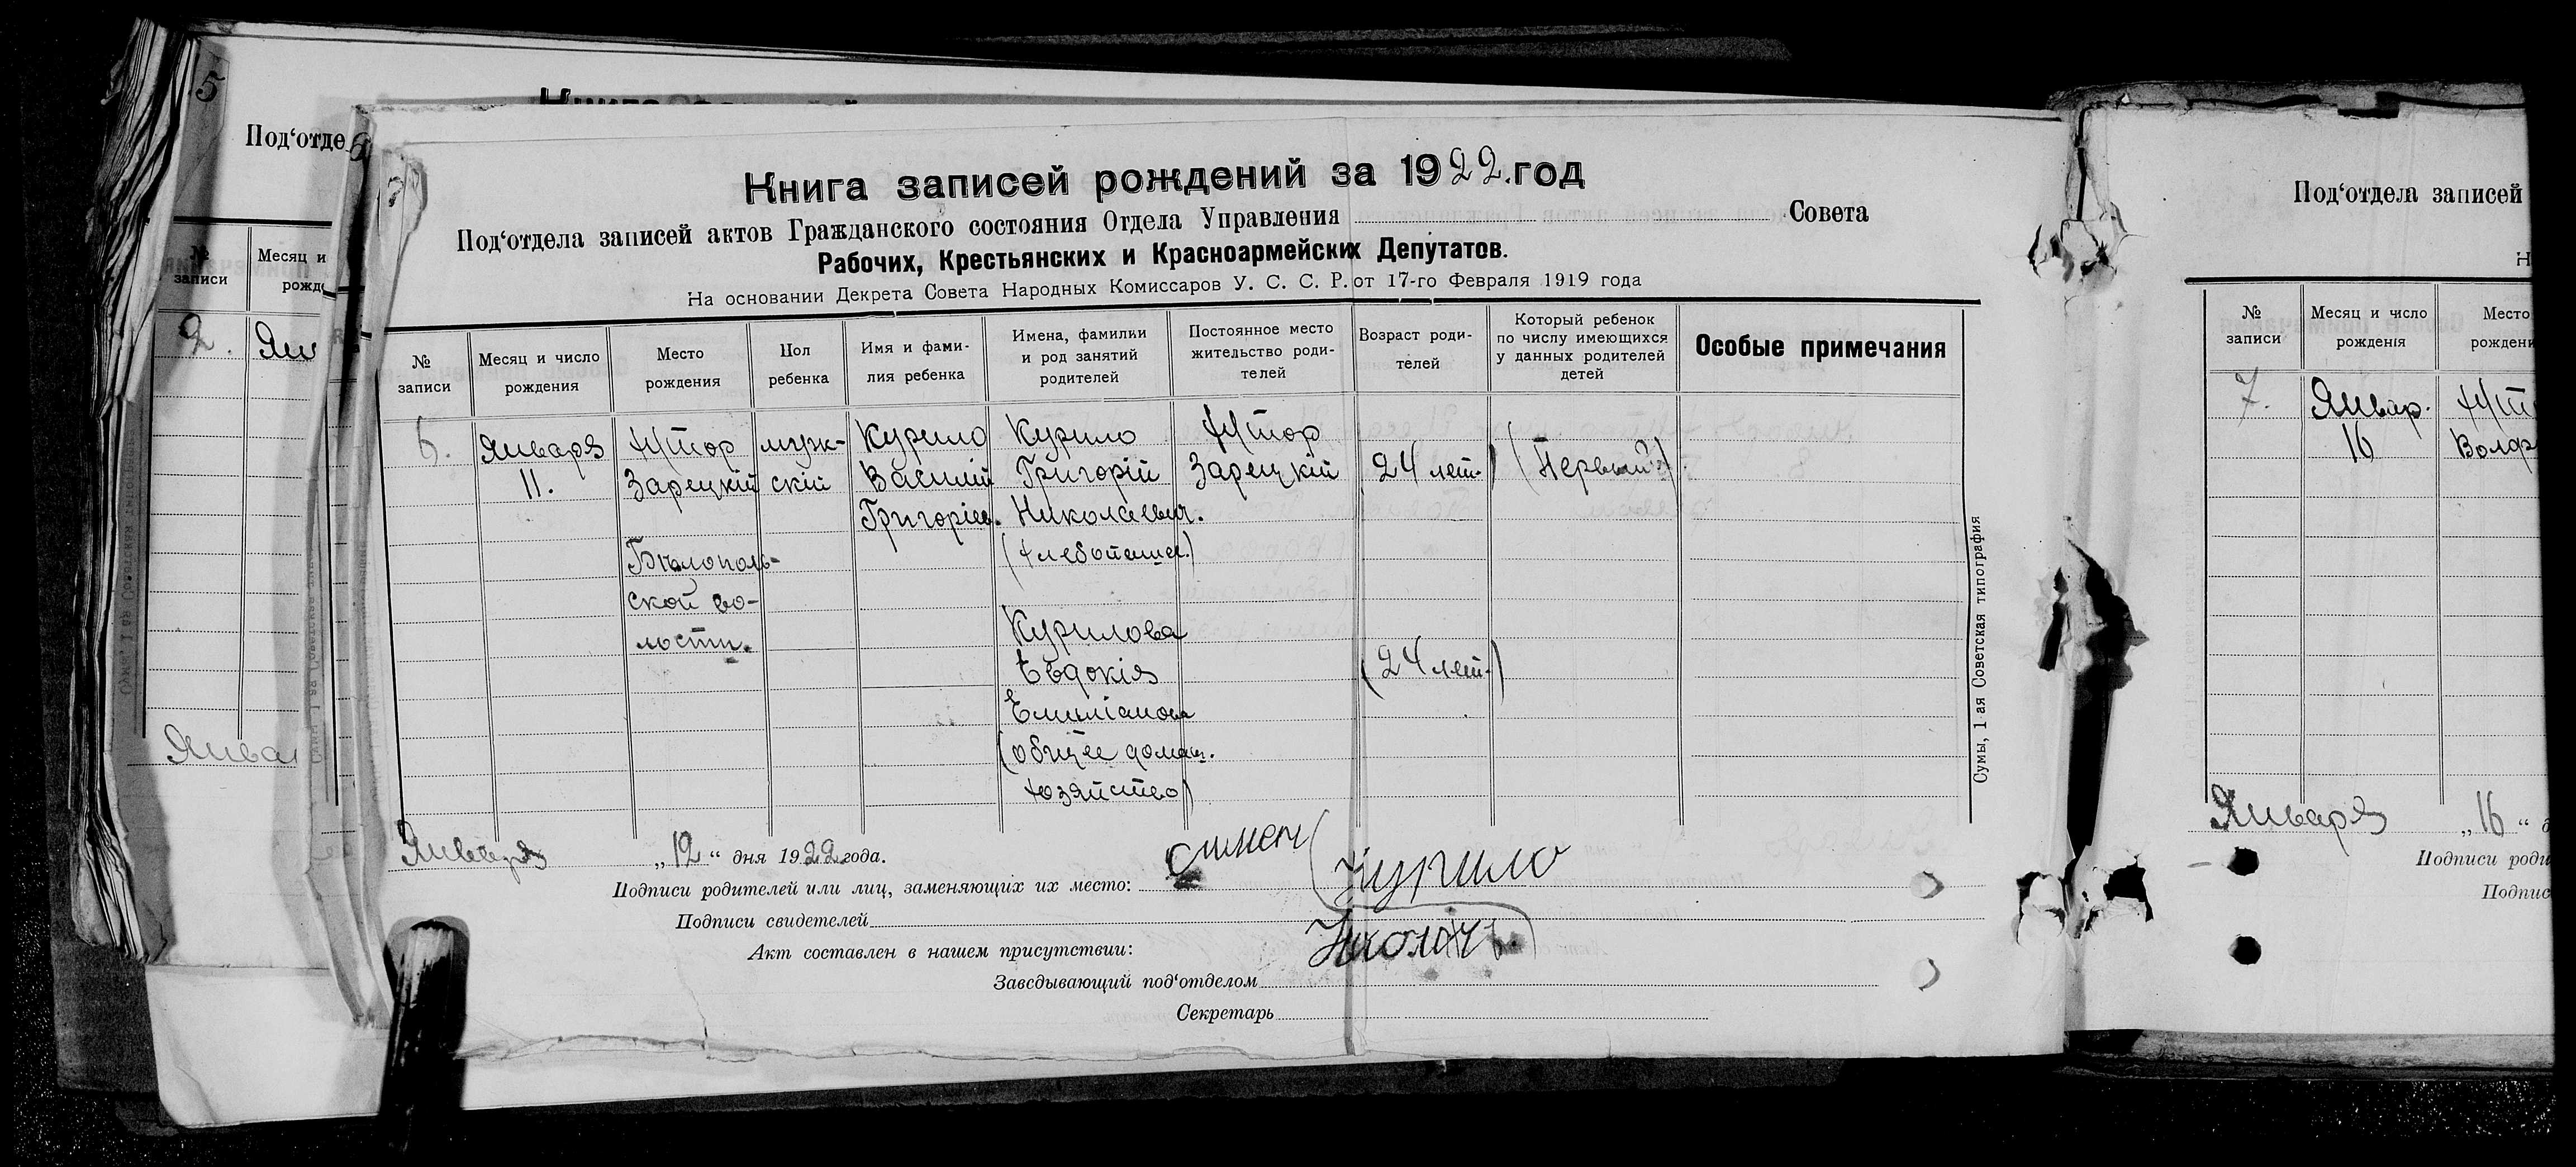 5
Под‘отде
№ записи
Месяц и
рожде
2.
Янв
Янва
6
7
Книга записей рождений за 1922 год
Под‘отдела записей актов Гражданского состояния Отдела Управления Совета
Рабочих, Крестьянских и Красноармейских Депутатов.
На основании Декрета Совета Народных Комиссаров У. С. С. Р. от 17-го Февраля 1919 года
№ записи
Месяц и число рождения
Место рождения
Пол ребенка
Имя и фами-
лия ребенка
Имена, фамилии
и род занятий
родителей
Постоянное место
жительство роди-
телей
Возраст роди-
телей
Который ребенок
по числу имеющихся
у данных родителей
детей
Особые примечания
6.
Января
11.
Хутор
Зарецкій
Бѣлополь-
ской во-
лости.
муж-
скій
Курило
Василій
Григоріев.
Курило
Григорій
Николаевич.
(хлебопашец.)
Курилова
Евдокія
Емиліанова
(общее домаш.
хозяйство)
Хутор
Зарецкій
24 лет.
(24 лет.)
(Первый)
Сумы, 1-ая Советская типография
Января „12“ дня 1922 года.
Подписи родителей или лиц, заменяющих их место:
Курило
Подписи свидетелей
Акт составлен в нашем присутствии:
Заведывающий под‘отделом
Секретарь
Под‘отдела записей
№ записи
Месяц и число рождения
Место
рождени
7.
Январ.
16
Января „16“ д
Подписи роди
Подпис